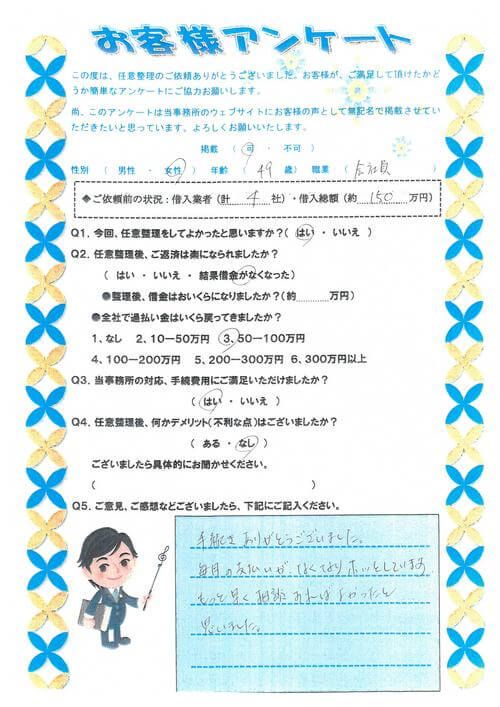 お客様アンケート
この度は、任意整理のご依頼ありがとうございました。お客様が、ご満足して頂けたかど
うか簡単なアンケートにご協力お願いします。
尚、このアンケートは当事務所のウェブサイトにお客様の声として無記名で掲載させてい
ただきたいと思っています。よろしくお願いいたします。
掲載 ( 可 ・ 不可 )
性別 ( 男性 ・ 女性 ) 年齢 ( 49 歳) 職業 ( 会社員 )
◆ご依頼前の状況:借入業者(計 4 社)・借入総額(約 150 万円)
Q1. 今回、任意整理をしてよかったと思いますか?( はい ・ いいえ )
Q2. 任意整理後、ご返済は楽になられましたか?
( はい ・ いいえ ・ 結果借金がなくなった )
●整理後、借金はおいくらになりましたか?(約 万円)
●全社で過払い金はいくら戻ってきましたか?
1、なし 2、10-50万円 3、50-100万円
4、100-200万円 5、200-300万円 6、300万円以上
Q3. 当事務所の対応、手続費用にご満足いただけましたか?
( はい ・ いいえ )
Q4. 任意整理後、何かデメリット(不利な点)はございましたか?
( ある ・ なし )
ございましたら具体的にお聞かせください。
( )
Q5. ご意見、ご感想などございましたら、下記にご記入ください。
手続きありがとうございました。
毎月の支払いが、なくなりホッとしています
もっと早く相談すればよかったと
思いました。